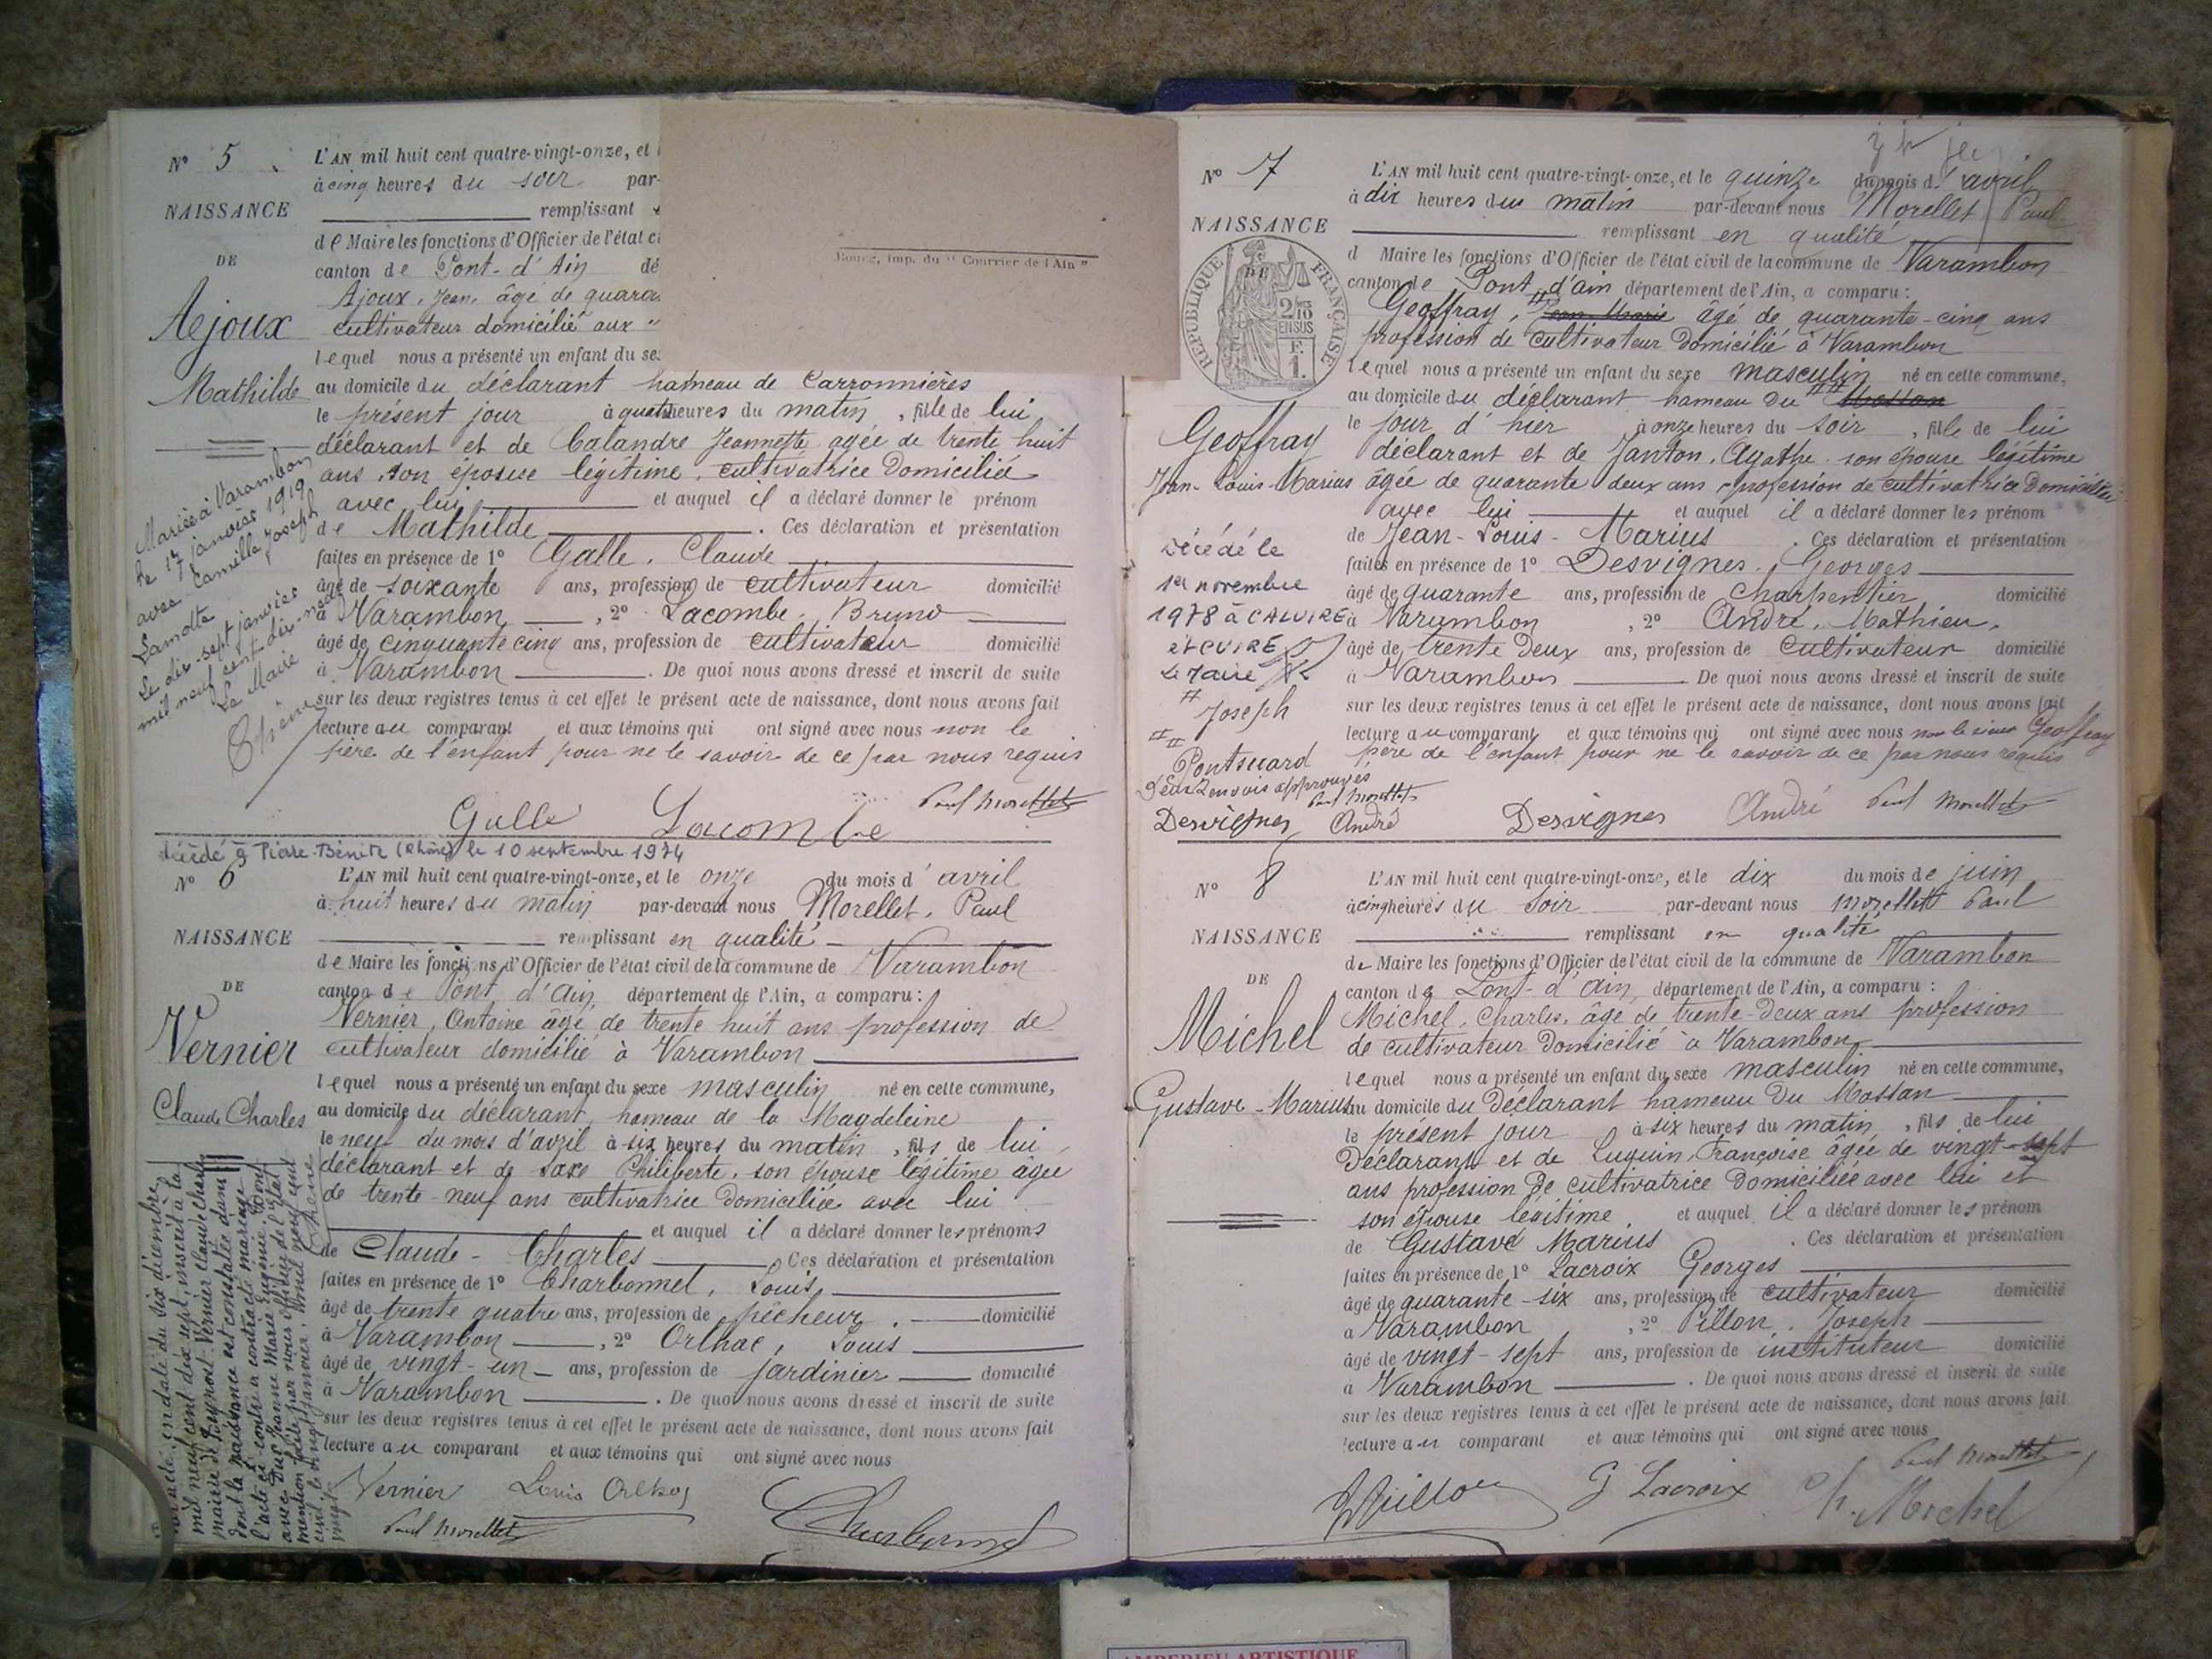 N° 5
L'AN mil huit cent quatre-vingt-onze, et
à cinq heures du soir par-
NAISSANCE
remplissant
de Maire les fonctions d'Officier de l'état ci
DE
canton de Pont-d'Ain dé
Ajoux, Jean, âgé de quara
Ajoux
cultivateur domicilié aux
lequel nous a présenté un enfant du se
Mathilde
au domicile du déclarant hameau de Carronnières
le présent jour à quatre heures du matin, fille de lui
déclarant et de Calandre Jeannette agée de trente huit
ans, son épouse légitime, cultivatrice Domiciliée
avec lui et auquel il a déclaré donner le prénom
de Mathilde. Ces déclaration et présentation
faites en présence de 1° Galle, Claude
âgé de soixante ans, profession de cultivateur domicilié
à Varambon, 2° Lacombe, Bruno
âgé de cinquante cinq ans, profession de cultivateur domicilié
à Varambon. De quoi nous avons dressé et inscrit de suite
sur les deux registres tenus à cet effet le présent acte de naissance, dont nous avons fait
lecture au comparant et aux témoins qui ont signé avec nous non le
père de l'enfant pour ne le savoir de ce par nous requis
Mariée à Varambon
le 17 janvier 1919
avec Camille Joseph
Lamotte
Le dix-sept janvier
mil neuf cent dix-neuf
Le Maire
Galle Lacombe Paul Morellet
décédé à Pierre-Bénite (Rhône) le 10 septembre 1974
N° 6
L'AN mil huit cent quatre-vingt-onze, et le onze du mois d'avril
à huit heures du matin par-devant nous Morellet, Paul
NAISSANCE
remplissant en qualité
de Maire les fonctions d'Officier de l'état civil de la commune de Varambon
DE
canton de Pont d'Ain, département de l'Ain, a comparu :
Vernier, Antoine âgé de trente huit ans profession de
Vernier
cultivateur domicilié à Varambon
lequel nous a présenté un enfant du sexe masculin né en cette commune,
Claude Charles
au domicile du déclarant, hameau de la Magdeleine
le neuf du mois d'avril à six heures du matin, fils de lui
déclarant et de Saxe Philiberte, son épouse légitime âgée
de trente-neuf ans cultivatrice domiciliée avec lui
et auquel il a déclaré donner les prénoms
de Claude-Charles Ces déclaration et présentation
faites en présence de 1° Charbonnel, Louis
âgé de trente quatre ans, profession de pêcheur, domicilié
à Varambon, 2° Orlhac, Louis
âgé de vingt-un ans, profession de jardinier domicilié
à Varambon. De quoi nous avons dressé et inscrit de suite
sur les deux registres tenus à cet effet le présent acte de naissance, dont nous avons fait
lecture au comparant et aux témoins qui ont signé avec nous
en date du six décembre
mil neuf cent dix sept, inscrit à la
mairie de Vernier Claude Charles
dont la naissance est constatée dans
l'acte ci-contre a contracté mariage
avec Duc Jeanne Marie Eugénie. Dont
mention faite par nous officier de l'état
Vernier Louis Orlhac
Paul Morellet Charbonnel
Bourg, imp. du "Courrier de l'Ain"
N° 7
L'AN mil huit cent quatre-vingt-onze, et le quinze du mois d'avril
à dix heures du matin par-devant nous Morellet Paul
NAISSANCE
remplissant en qualité
DE
d Maire les fonctions d'Officier de l'état civil de la commune de Varambon
canton de Pont d'ain département de l'Ain, a comparu :
REPUBLIQUE FRANÇAISE
Geoffray, Jean Marie âgé de quarante-cinq ans
profession de Cultivateur Domicilié à Varambon
lequel nous a présenté un enfant du sexe masculin né en cette commune,
au domicile du déclarant hameau du Mossan
le jour d'hier à onze heures du soir, fils de lui
Geoffray
déclarant et de Janton, Agathe son épouse légitime
Jean-Louis-Marius
âgée de quarante deux ans, profession de cultivatrice Domiciliée
avec lui et auquel il a déclaré donner les prénom
de Jean-Louis-Marius. Ces déclaration et présentation
faites en présence de 1° Desvignes, Georges
âgé de quarante ans, profession de Charpentier domicilié
à Varambon, 2° André, Mathieu,
âgé de trente Deux ans, profession de Cultivateur domicilié
à Varambon De quoi nous avons dressé et inscrit de suite
sur les deux registres tenus à cet effet le présent acte de naissance, dont nous avons fait
lecture au comparant et aux témoins qui ont signé avec nous non le sieur Geoffray
père de l'enfant pour ne le savoir de ce par nous requis
Décédé le
1er novembre
1978 à CALUIRE
ET CUIRE
Le Maire
Joseph
Pontsuard
Deux Renvois approuvés
Paul Morellet
Desvignes André
Desvignes André Paul Morellet
N° 8
L'AN mil huit cent quatre-vingt-onze, et le dix du mois de juin
à cinq heures du soir par-devant nous Morellet Paul
NAISSANCE
remplissant en qualité
de Maire les fonctions d'Officier de l'état civil de la commune de Varambon
DE
canton de Pont-d'ain, département de l'Ain, a comparu :
Michel, Charles, âgé de trente-deux ans profession
Michel
de cultivateur Domicilié à Varambon
lequel nous a présenté un enfant du sexe masculin né en cette commune,
Gustave-Marius
au domicile du déclarant hameau du Mossan
le présent jour à six heures du matin, fils de lui
Déclarant et de Luquin, Françoise âgée de vingt-sept
ans profession de cultivatrice Domiciliée avec lui et
son épouse légitime, et auquel il a déclaré donner les prénom
de Gustave Marius. Ces déclaration et présentation
faites en présence de 1° Lacroix Georges
âgé de quarante-six ans, profession de cultivateur domicilié
à Varambon, 2° Pillon, Joseph
âgé de vingt-sept ans, profession de instituteur domicilié
à Varambon. De quoi nous avons dressé et inscrit de suite
sur les deux registres tenus à cet effet le présent acte de naissance, dont nous avons fait
lecture au comparant et aux témoins qui ont signé avec nous
Paul Morellet
Pillon G Lacroix Ch. Michel
AMBERIEU ARTISTIQUE